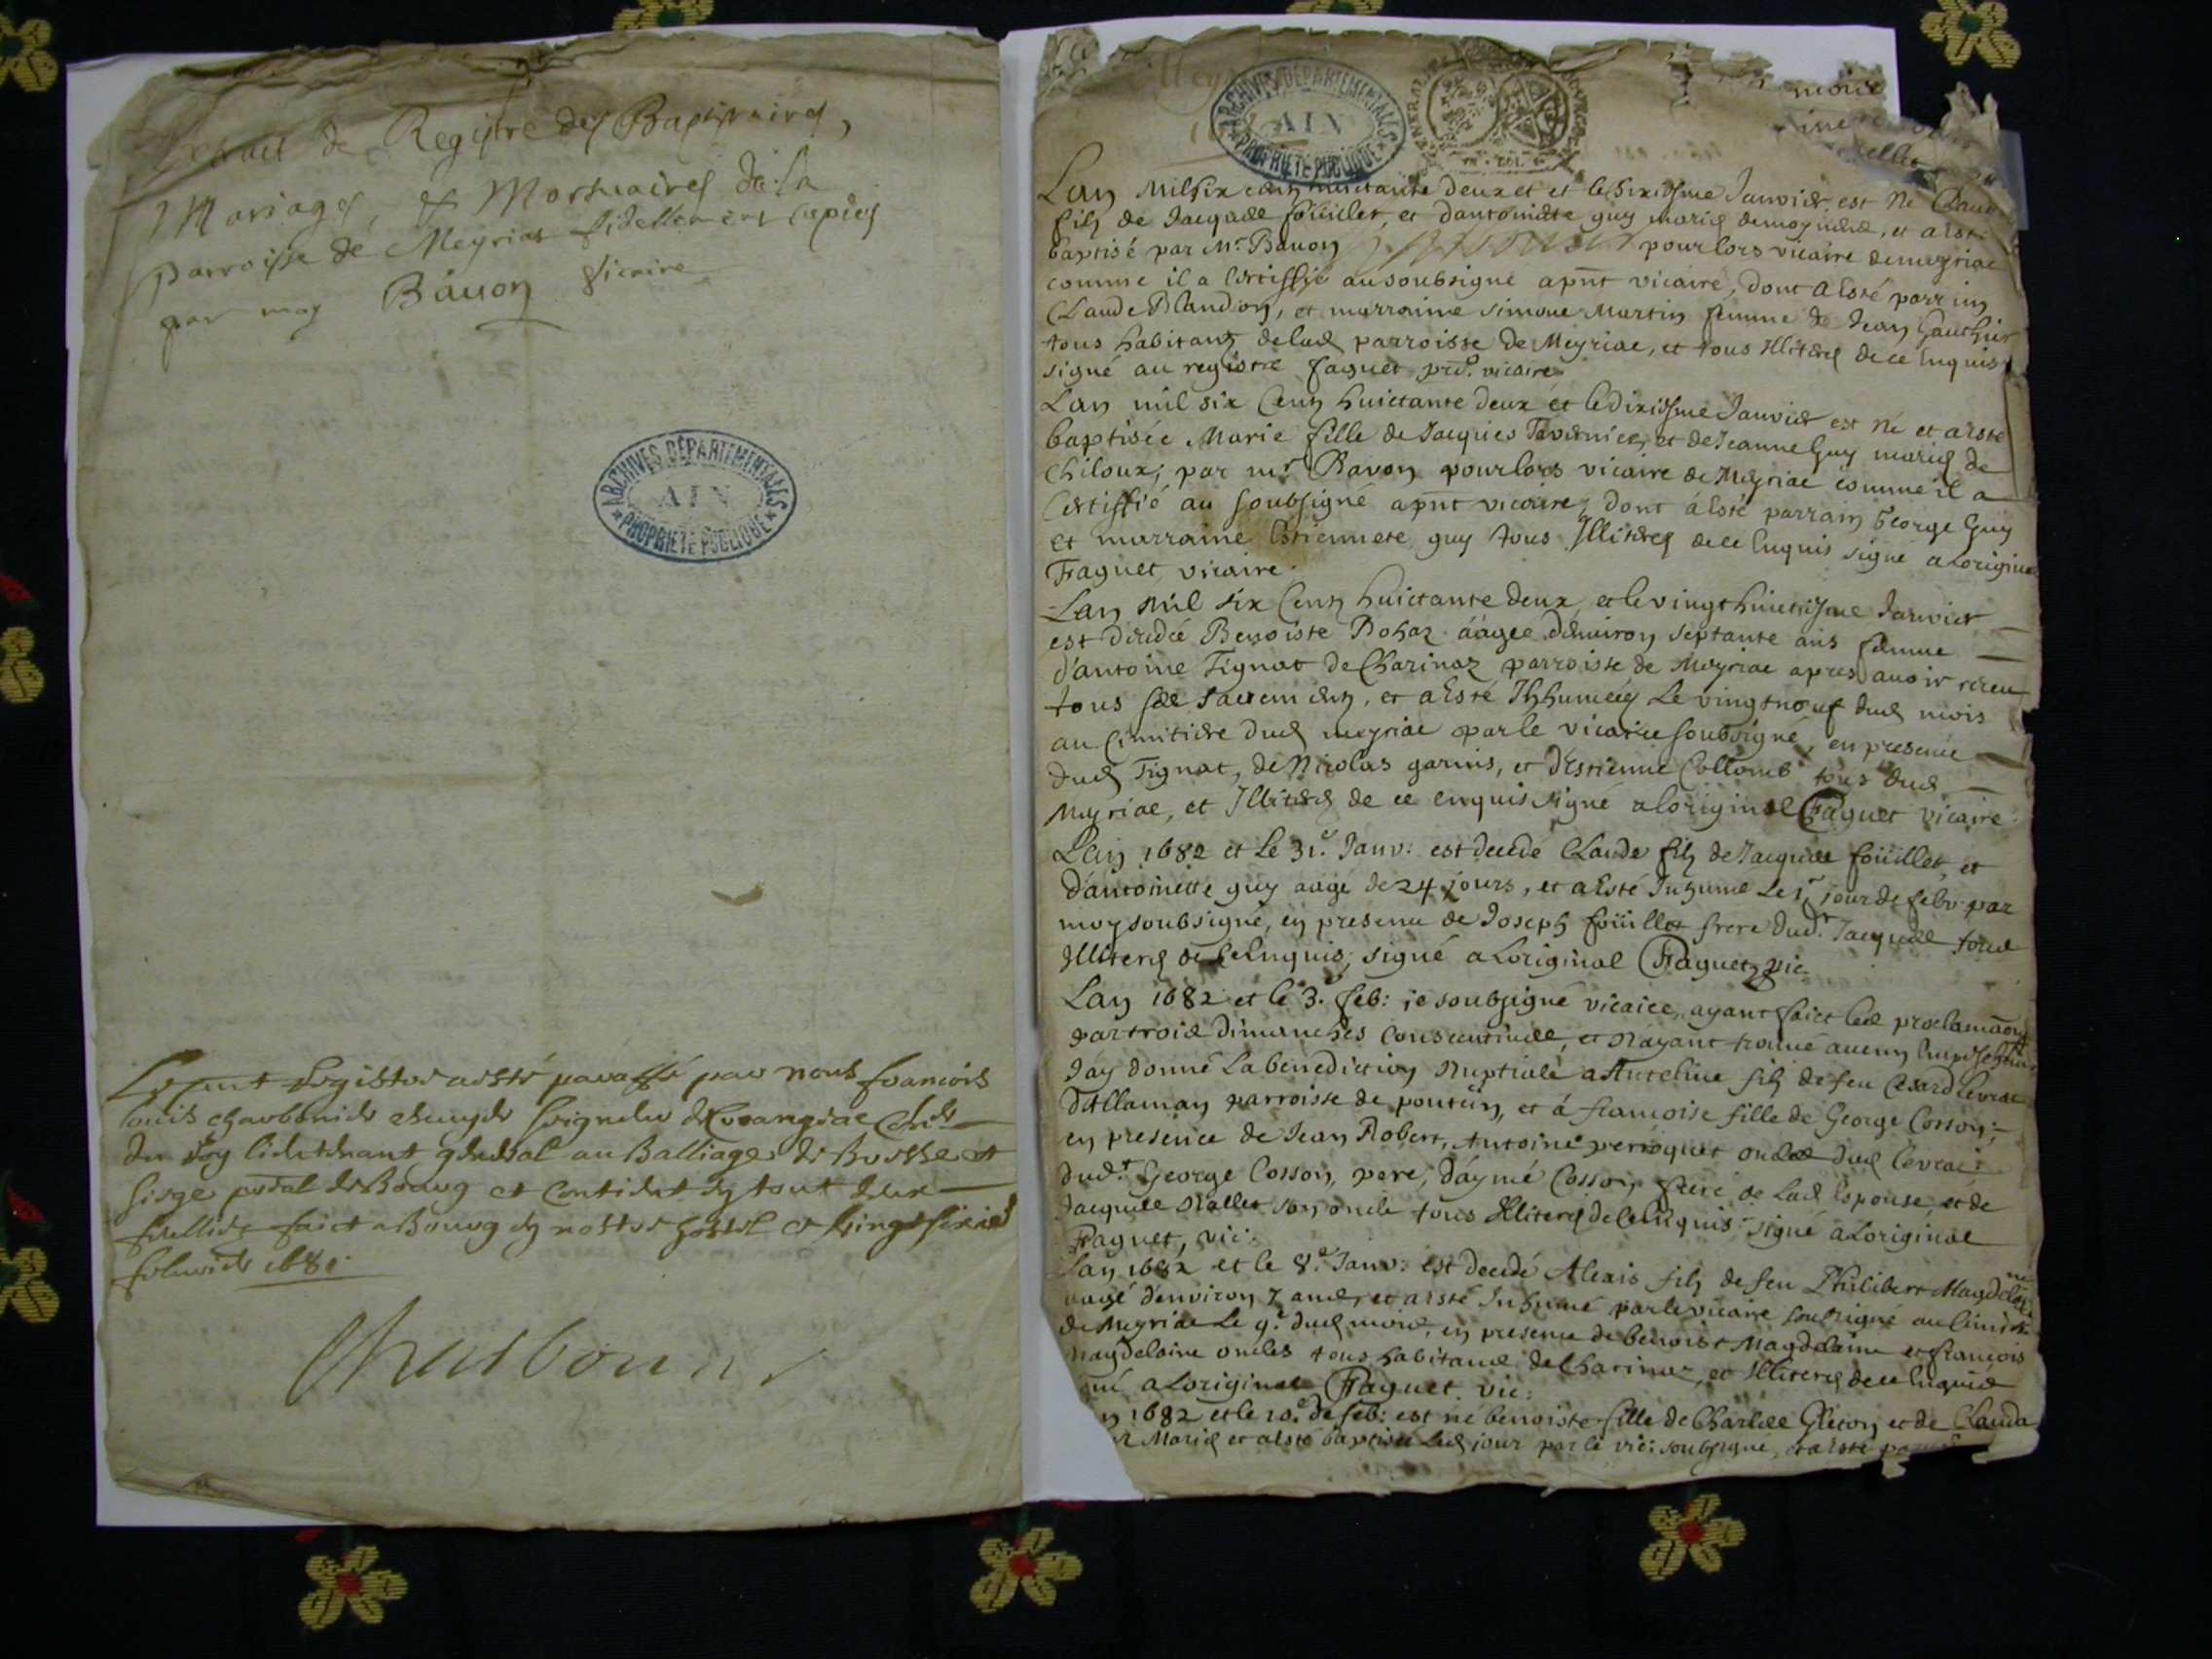 Extraict de Registre des Baptistaires,
Mariages, & Mortuaires de la
parroisse de Meyriat fidellement copiés
par moy Bauon Vicaire
ARCHIVES DÉPARTEMENTALES
AIN
PROPRIÉTÉ PUBLIQUE
registre a esté paraffé par nous francois
louis charbonnier escuyer seigneur de Crangeac
du Roy lieutenant general au Balliage de Bresse et
siege pñdal de Bourg et contient
fuellietz faict a Bourg en nostre hostel ce vingt
1681.
Charbonnier
ARCHIVES DÉPARTEMENTALES
AIN
PROPRIÉTÉ PUBLIQUE
mois
Lan Mil six cens huictante deux et et le sixiesme Janvier est né Claude
filz de Jacques foüillet, et dantoinette guy mariés de meyriat, et a esté
baptisé par Mr. Bauon pour lors vicaire de meyriac
comme il a certiffié au soubsigné apñt vicaire, dont a esté parrin
Claude Blandon, et marraine simone Martin femme de Jean Gauthier
tous habitans de lad parroisse de Meyriac, et tous Illiterés de ce enquis
signé au registre faguet prd. vicaire
Lan mil six Cens huictante deux et le dixiesme Janvier est né et a esté
baptisée Marie fille de Jacques Tavernier, et de Jeanne Guy mariés de
Chiloux, par mr. Bavon pour lors vicaire de Meyriac comme il a
certiffié au soubsigné apñt vicaire, dont á esté parrain George Guy
et marraine Estiennete guy tous Illiterés de ce enquis signé a Loriginal
Faguet vicaire.
Lan mil six Cens huictante deux, et le vingt huictiesme Janvier
est decedée Benoiste Bohaz áàgee denviron septante ans femme
d'antoine Tignat de Charinaz parroisse de Meyriac apres avoir receu
tous ses sacremens, et a esté Ihhumée Le vingtneuf dud mois
au Cimitiere dud meyriac par le vicaire soubsigné, en presence
dud Tignat, de Nicolas garins, et d'Estienne Collomb tous dud
Meyriac, et Illiterés de ce enquis signé a loriginal Faguet vicaire.
Lan 1682 et le 31.e Janv: est decedé Claude filz de Jacques foüillet, et
d'antoinette guy aagé de 24 jours, et a esté Inhumé Le 1r jour de febv. par
moy soubsigné, en presence de Joseph foüillet frere dud. Jacques tous
Illiterés de ce enquis, signé a Loriginal Faguet, vic.
Lan 1682 et le 3.e feb: je soubsigné vicaire, ayant faict les proclamaons
par trois dimanches consecutives, et n'ayant trouvé aucun empeschement
J'ay donné La benediction Nuptiale a Anteline filz de feu Cesard Levrat
dAllaman parroisse de poncin, et á francoise fille de George Cosson,
en presence de Jean Robert, Antoine perroquet oncles dud Levrat
dud.t George Cosson, pere, d'aymé Cosson frere de Lad Espouse, et de
Jacques Nallet son oncle tous Illiterés de ce enquis. signé a Loriginal
Faguet, vic:
Lan 1682 et le 8.e Janv: est decedé Alexis filz de feu Philibert Magdelaine
aagé denviron 7 ans, et a esté Inhumé par le vicaire soubsigné au Cimitiere
de Meyriac Le 9.e dud mois, en presence de benoist Magdelaine et francois
Magdelaine oncles tous habitans de Charinaz, et Illiterés de ce enquis
né a Loriginal Faguet vic:
n 1682 et le 10.e de feb: est né benoiste fille de Charles Gleton et de Clauda
Mariés et a esté baptisée Led jour par le vic: soubsigné, et a esté